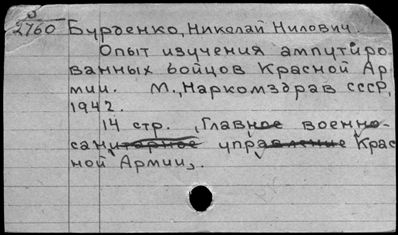 З
2760 Бурденко, Николай Нилович.
Опыт изучения ампутиро
ванных бойцов Красной Ар
мии. М., Наркомздрав СССР,
1942.
14 стр., Главное военно-
санитарное управление Крас
ной Армии,.